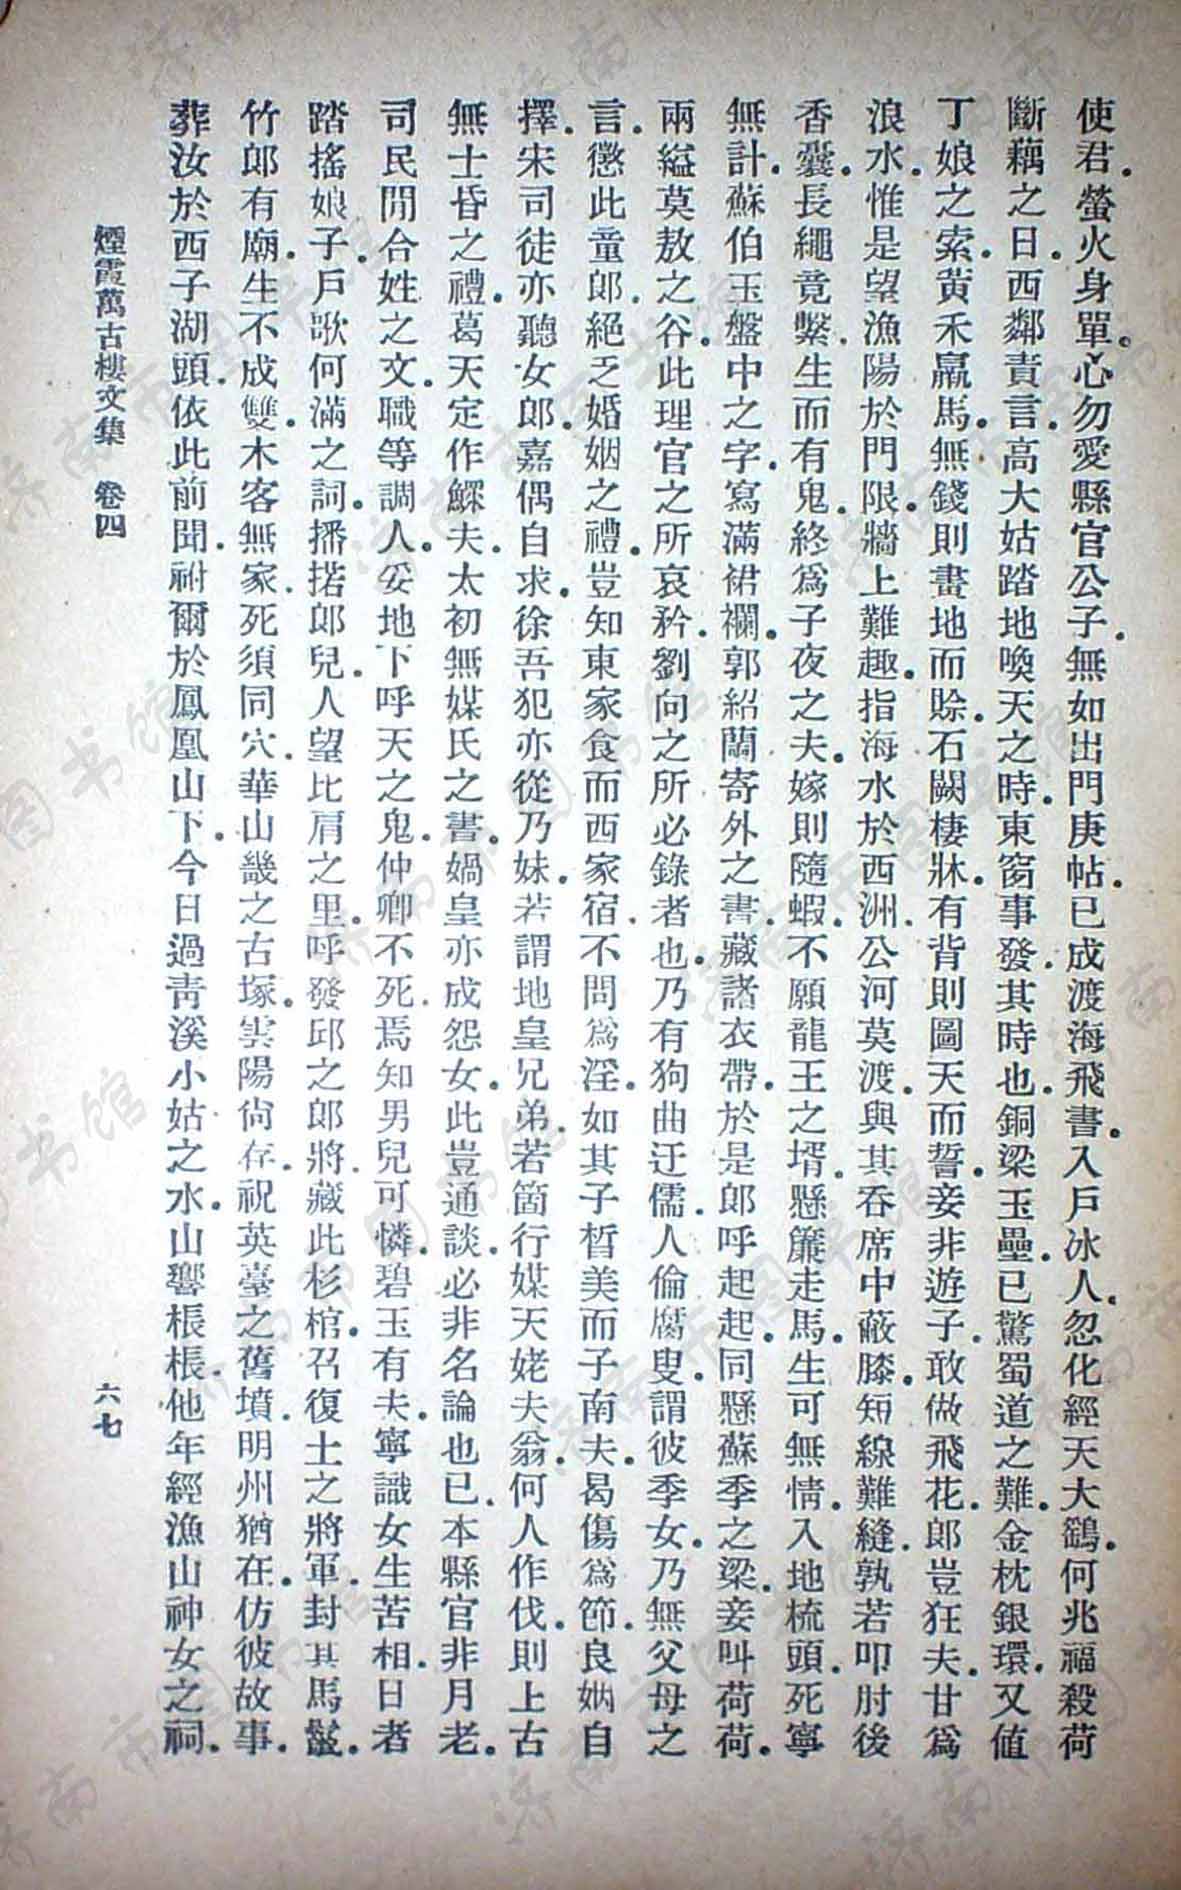 使君。螢火身單。心勿愛縣官公子。無如出門庚帖。已成渡海飛書。入戶冰人。忽化經天大鶴。何兆福殺荷
斷藕之日。西鄰責言。高大姑踏地喚天之時。東窗事發。其時也。銅梁玉壘。已驚蜀道之難。金枕銀環。又值
丁娘之索。黃禾羸馬。無錢則畫地而賒。石闕棲牀。有背則圖天而誓。妾非遊子。敢做飛花。郎豈狂夫。甘為
浪水。惟是望漁陽於門限。牆上難趣。指海水於西洲。公河莫渡。與其吞席中蔽膝。短線難縫。孰若叩肘後
香囊。長繩竟繫。生而有鬼。終為子夜之夫。嫁則隨蝦。不願龍王之壻。懸簾走馬。生可無情。入地梳頭。死寧
無計。蘇伯玉盤中之字。寫滿裙襴。郭紹蘭寄外之書。藏諸衣帶。於是郎呼起起。同懸蘇季之梁。妾叫荷荷。
兩縊莫敖之谷。此理官之所哀矜。劉向之所必錄者也。乃有狗曲迂儒。人倫腐叟。謂彼季女。乃無父母之
言。懲此童郎。絕乏婚姻之禮。豈知東家食而西家宿。不問為淫。如其子皙美而子南夫。曷傷為節。良姻自
擇。宋司徒亦聽女郎。嘉偶自求。徐吾犯亦從乃妹。若謂地皇兄弟。若箇行媒。天姥夫翁。何人作伐。則上古
無士昏之禮。葛天定作鰥夫。太初無媒氏之書。媧皇亦成怨女。此豈通談。必非名論也已。本縣官非月老。
司民閒合姓之文。職等調人。妥地下呼天之鬼。仲卿不死。焉知男兒可憐。碧玉有夫。寧識女生苦相。日者
踏搖娘子。戶歌何滿之詞。播搭郎兒。人望比肩之里。呼發邱之郎將。藏此杉棺。召復土之將軍。封其馬鬣。
竹郎有廟。生不成雙。木客無家。死須同穴。華山畿之古塚。雲陽尙存。祝英臺之舊墳。明州猶在。仿彼故事。
葬汝於西子湖頭。依此前聞。祔爾於鳳凰山下。今日過青溪小姑之水。山響棖棖。他年經漁山神女之祠。
煙霞萬古樓文集 卷四
六七